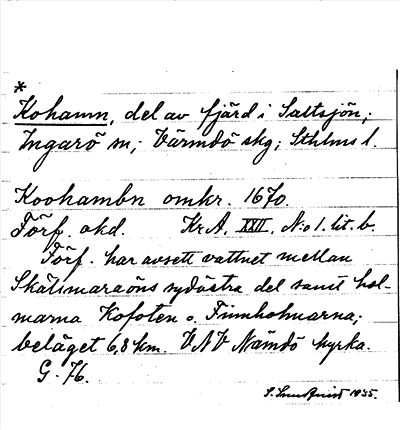 *
Kohamn, del av fjärd i Saltsjön;
Ingarö sn; Värmdö skg; Sthlms l.
Koohambn omkr. 1670.
Förf. okd. Kr.A. XXII. N:o 1. lit. b.
Förf. har avsett vattnet mellan
Skälsmaraöns sydöstra del samt hol-
marna Kofoten o. Finnholmarna;
beläget 6,8 km. VNV Nämdö kyrka.
G. 76.
S. 1935.